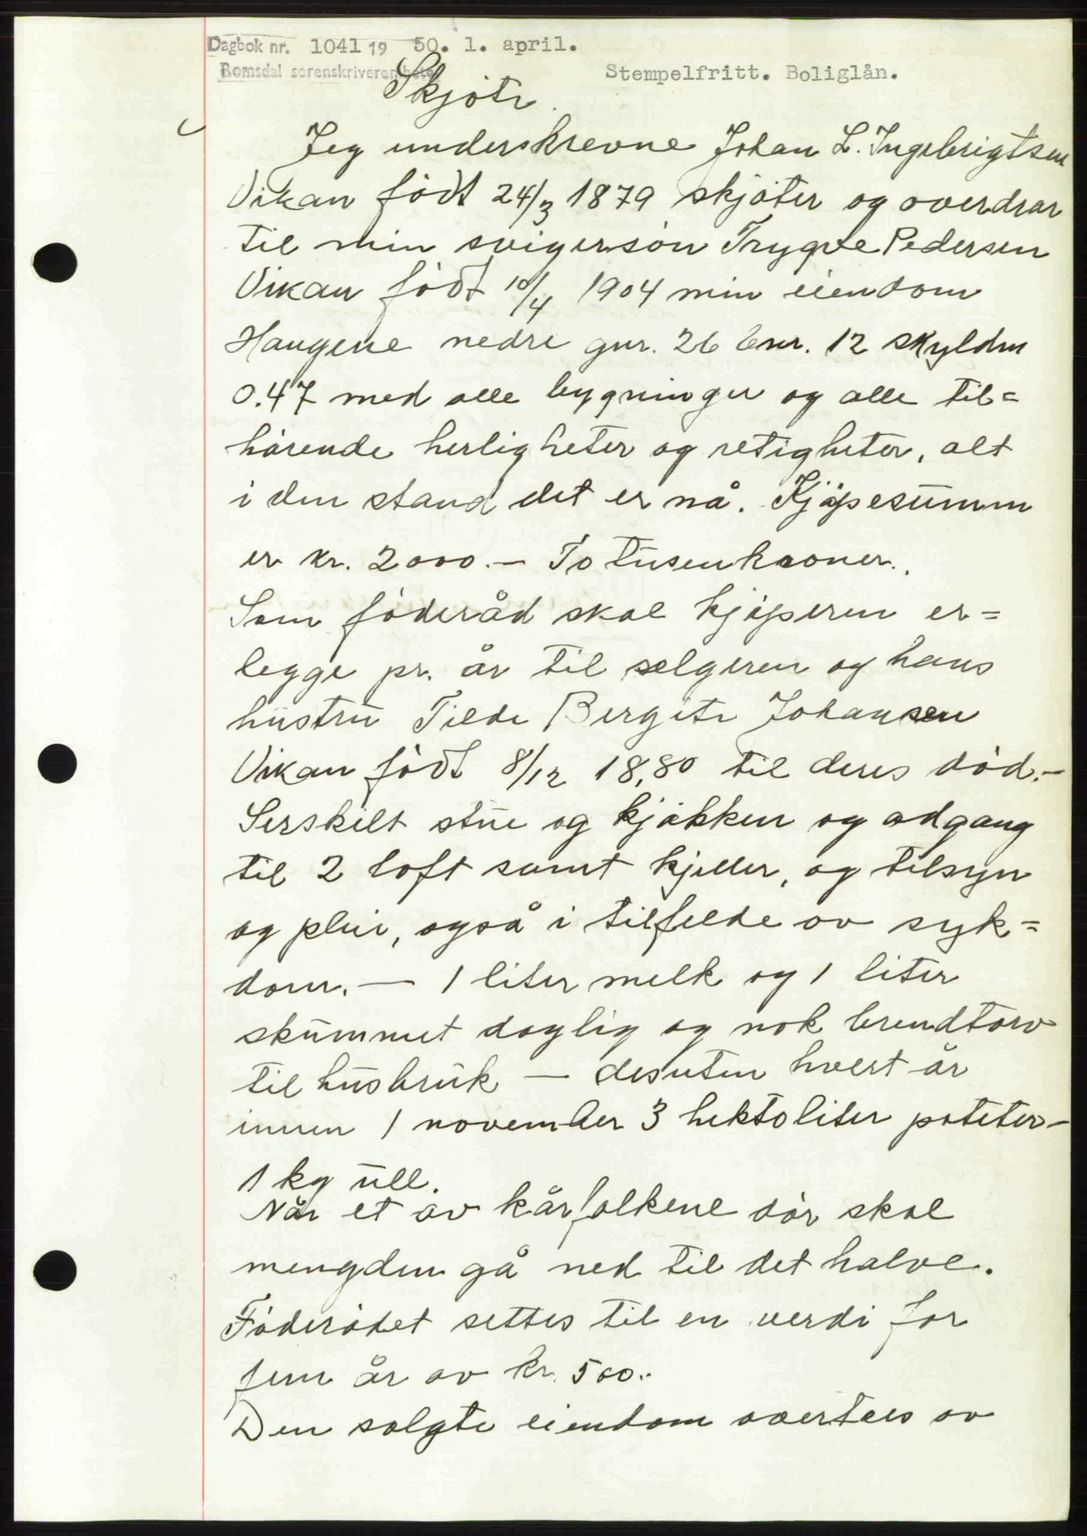 Dagbok nr. 1041 19 50. 1. april.
Romsdal sorenskriverembete
Stempelfritt. Boliglån.
Skjøte
Jeg underskrevne Johan L. Ingebrigtsen
Vikan født 24/3 1879 skjøter og overdrar
til min svigersøn Trygve Pedersen
Vikan født 10/4 1904 min eiendom
Haugene nedre gnr. 26 bnr. 12 skyldm
0.47 med alle bygninger og alle til=
hørende herligheter og retigheter, alt
i den stand det er nå. Kjøpesumm
er kr. 2000.— To tusen kroner.
Som føderåd skal kjøperen er=
legge pr. år til selgeren og hans
hustru Tilde Bergite Johansen
Vikan født 8/12 18,80 til deres død.—
Serskilt stue og kjøkken og adgang
til 2 loft samt kjeller, og tilsyn
og pleie, også i tilfelde av syk=
dom. — 1 liter melk og 1 liter
skummet daglig og nok brendtorv
til husbruk — desuten hvert år
innen 1 november 3 hektoliter poteter—
1 kg ull.
Når et av kårfolkene dør skal
mengden gå ned til det halve.
Føderådet settes til en verdi for
fem år av kr. 500.
Den solgte eiendom overtaes av